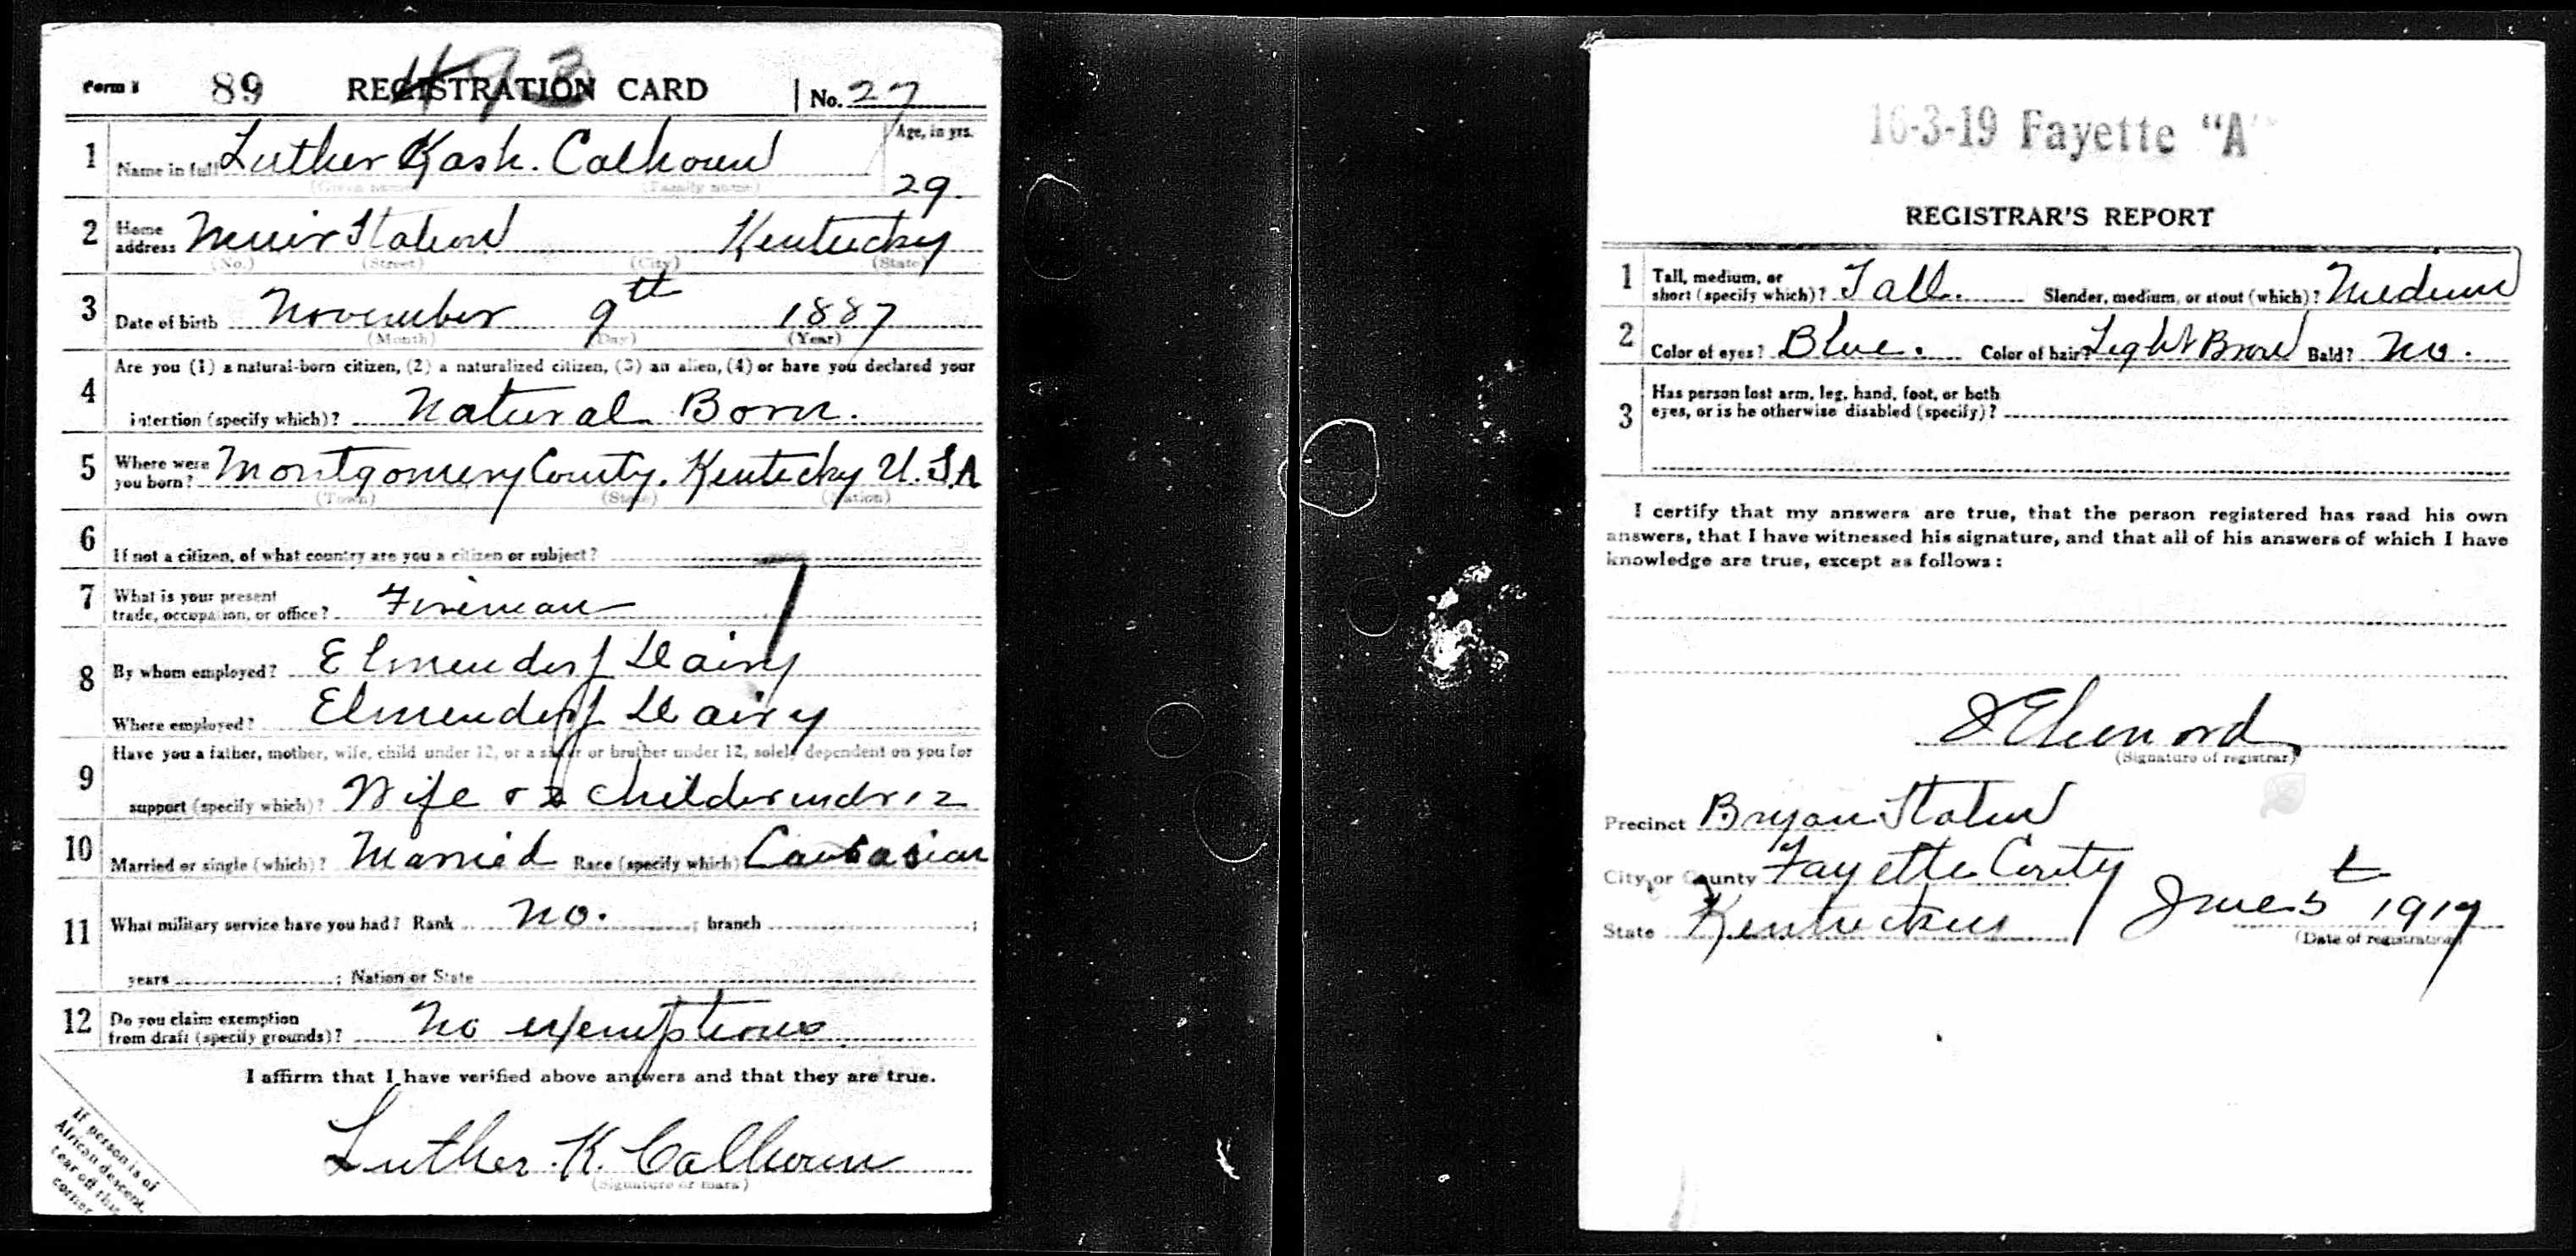 Form 1 89 REGISTRATION CARD No. 27
493
1 Name in full Luther Kash. Calhoun Age, in yrs.
(Given name) (Family name) 29.
2 Home address Muir Station Kentucky
(No.) (Street) (City) (State)
3 Date of birth November 9th 1887
(Month) (Day) (Year)
4 Are you (1) a natural-born citizen, (2) a naturalized citizen, (3) an alien, (4) or have you declared your
intention (specify which)? Natural Born.
5 Where were you born? Montgomery County. Kentucky U.S.A
(Town) (State) (Nation)
6 If not a citizen, of what country are you a citizen or subject?
7 What is your present
trade, occupation, or office? Fireman
8 By whom employed? Elmendorf Dairy
Where employed? Elmendorf Dairy
9 Have you a father, mother, wife, child under 12, or a sister or brother under 12, solely dependent on you for
support (specify which)? Wife & 2 child under 12
10 Married or single (which)? Married Race (specify which) Caucasian
11 What military service have you had? Rank No. ; branch ;
years ; Nation or State
12 Do you claim exemption
from draft (specify grounds)? No exemptions
I affirm that I have verified above answers and that they are true.
Luther. K. Calhoun
(Signature or mark)
If person is of
African descent,
tear off this
corner
16-3-19 Fayette "A"
REGISTRAR'S REPORT
1 Tall, medium, or
short (specify which)? Tall. Slender, medium, or stout (which)? Medium
2 Color of eyes? Blue. Color of hair? Light Brown Bald? No.
3 Has person lost arm, leg, hand, foot, or both
eyes, or is he otherwise disabled (specify)?
I certify that my answers are true, that the person registered has read his own
answers, that I have witnessed his signature, and that all of his answers of which I have
knowledge are true, except as follows:
(Signature of registrar)
Precinct Bryan Station
City or County Fayette County
State Kentucky June 5t 1917
(Date of registration)